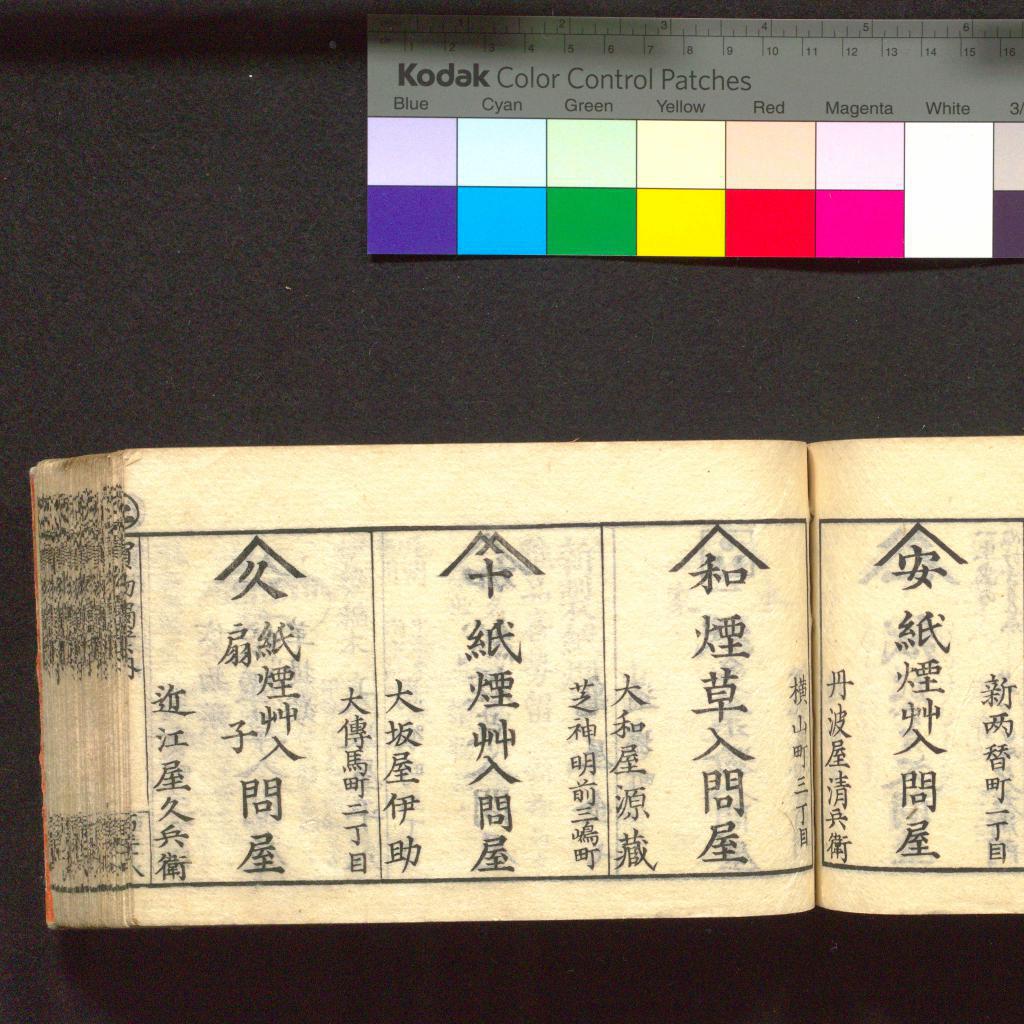 Kodak Color Control Patches
Blue Cyan Green Yellow Red Magenta White 3/
新両替町二丁目
安
紙煙艸入問屋
丹波屋清兵衛
横山町三丁目
和
煙草入問屋
大和屋源藏
芝神明前三嶋町
十
紙煙艸入問屋
大坂屋伊助
大傳馬町二丁目
久
紙煙艸入
扇子
問屋
近江屋久兵衛